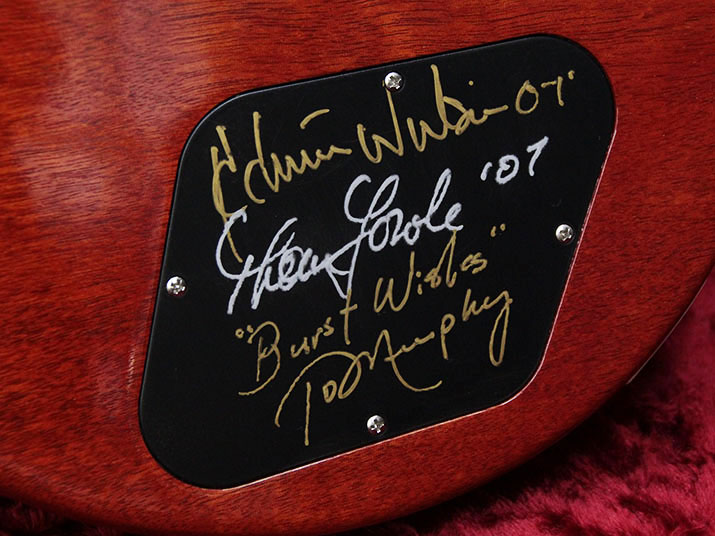 Edwin Wilson 07'
'07
"Burst Wishes"
Tom Murphy